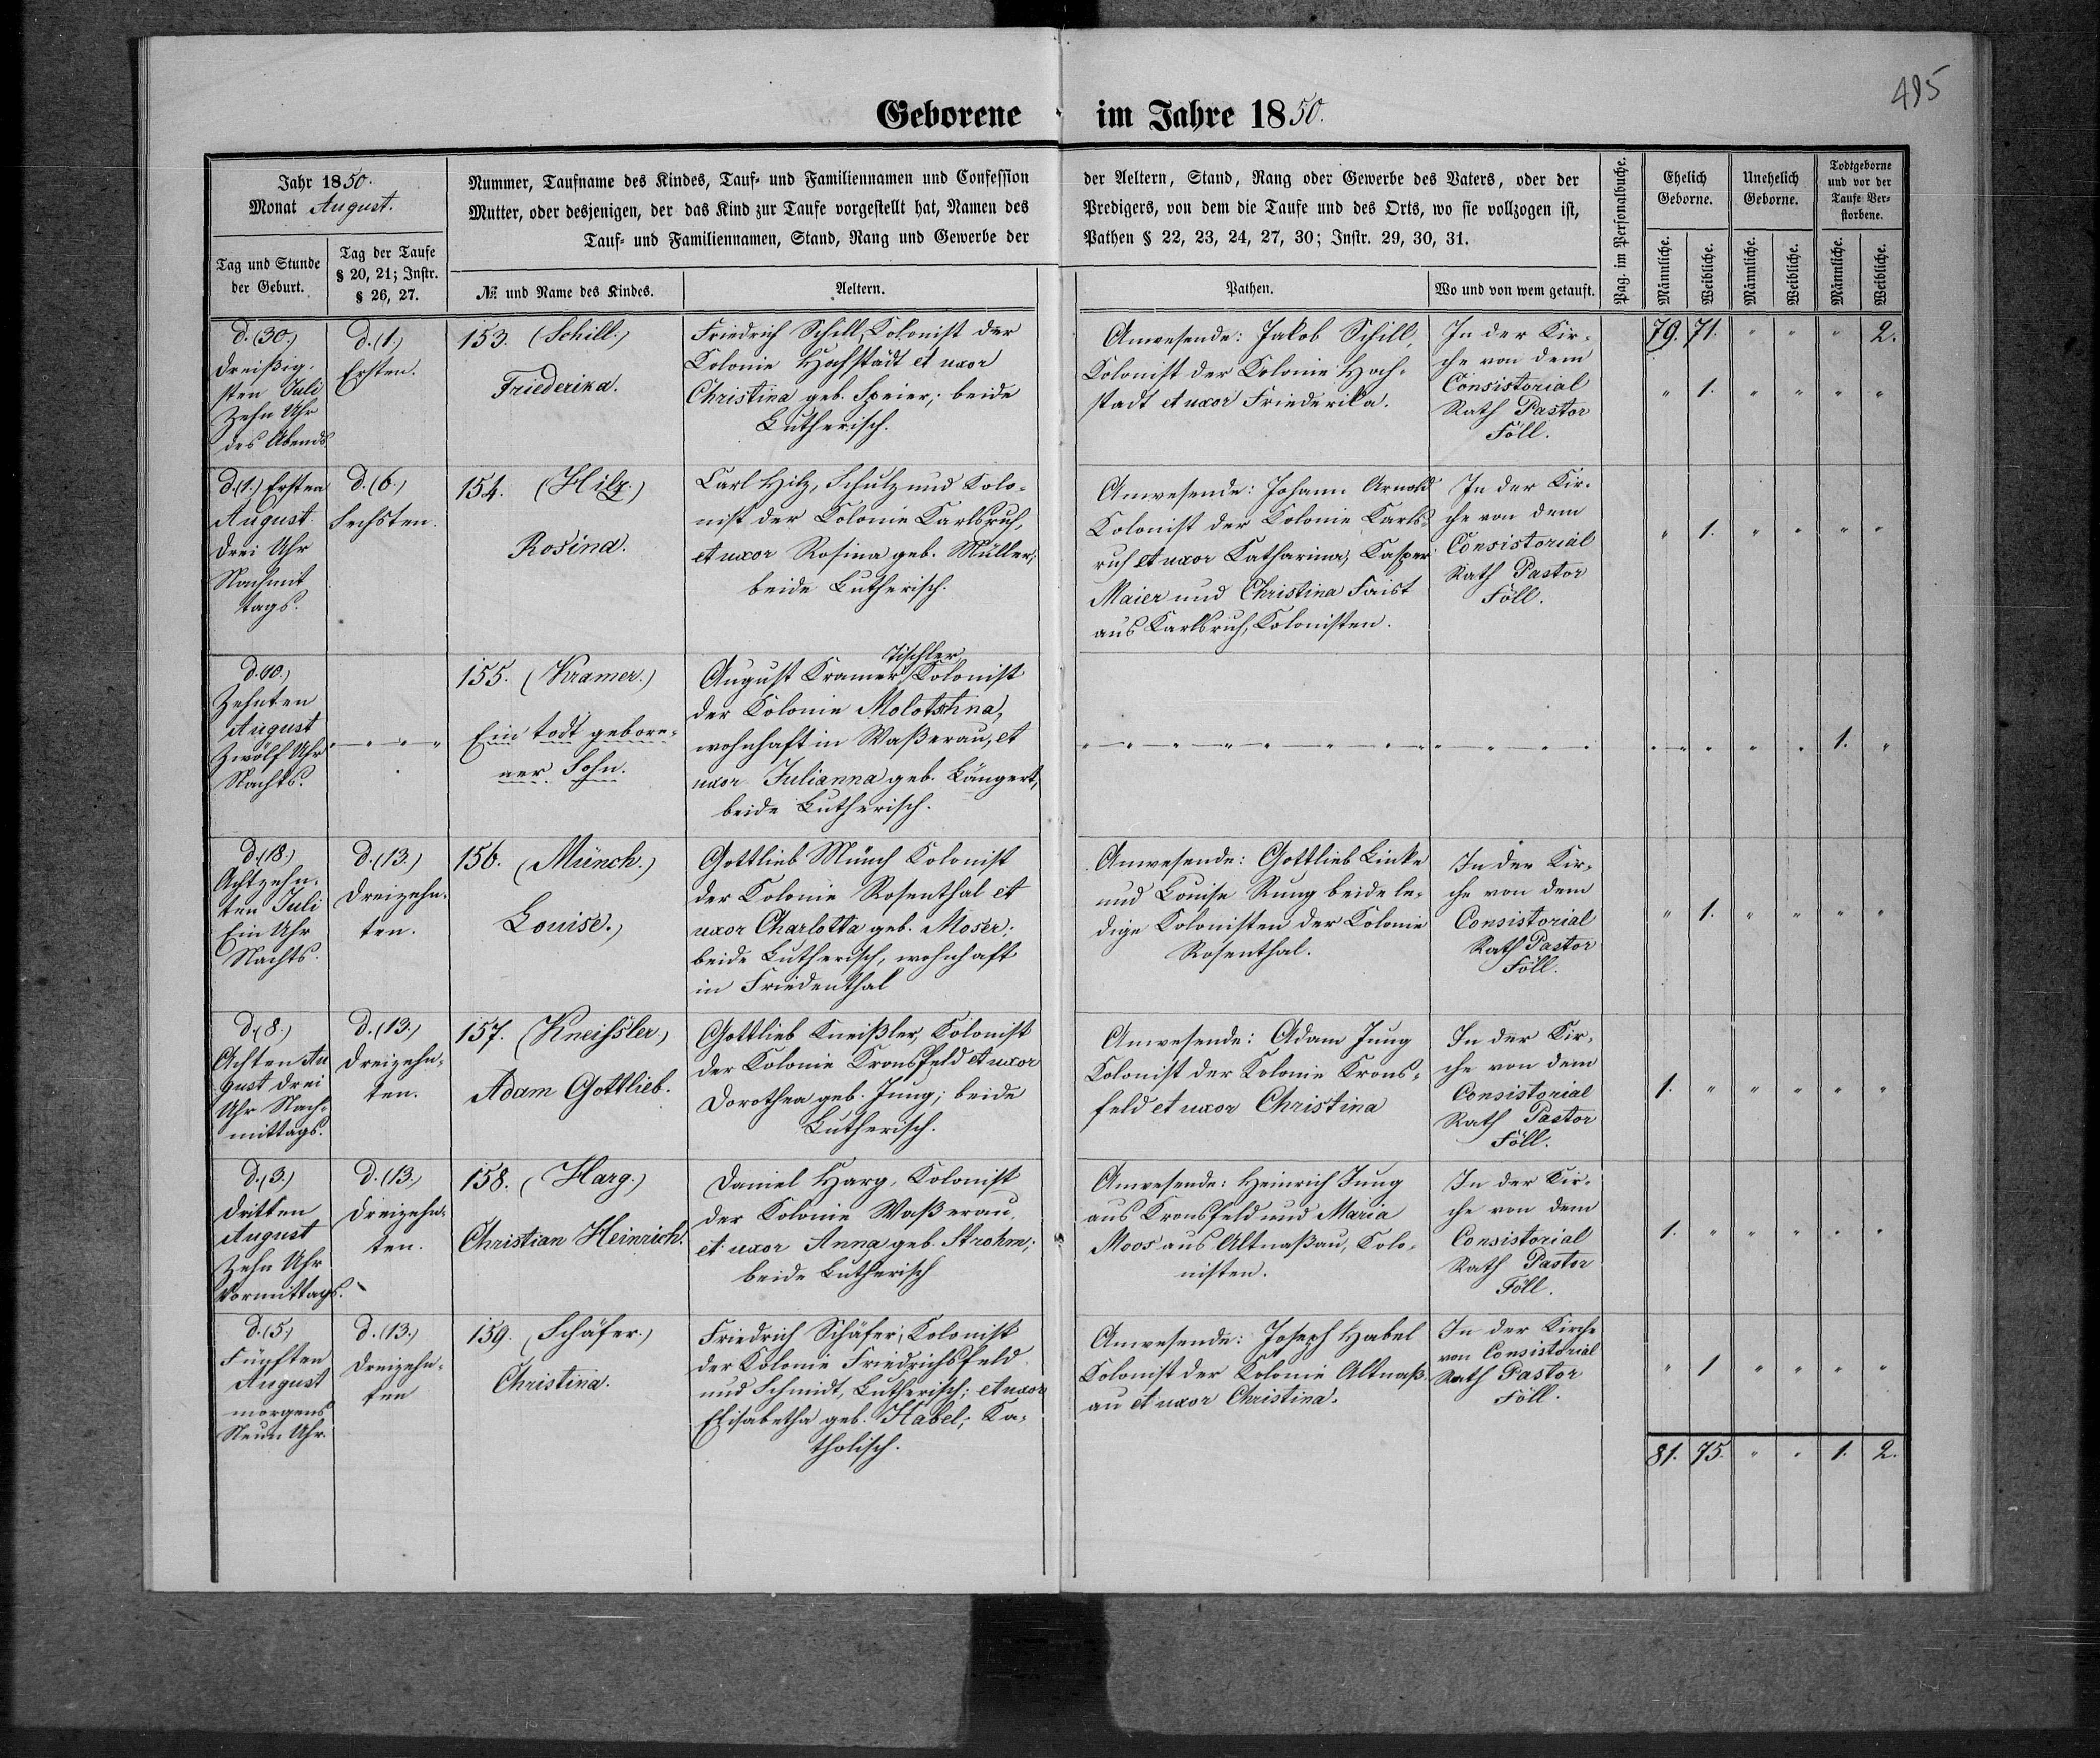 495
Geborene im Jahre 1850.
Jahr 1850.
Monat August.
Tag und Stunde
der Geburt.
Tag der Taufe
§ 20, 21; Instr.
§ 26, 27.
Nummer, Taufname des Kindes, Tauf- und Familiennamen und Confession
Mutter, oder desjenigen, der das Kind zur Taufe vorgestellt hat, Namen des
Tauf- und Familiennamen, Stand, Rang und Gewerbe der
№ und Name des Kindes.
Aeltern.
der Aeltern, Stand, Rang oder Gewerbe des Vaters, oder der
Predigers, von dem die Taufe und des Orts, wo sie vollzogen ist,
Pathen § 22, 23, 24, 27, 30; Instr. 29, 30, 31.
Pathen.
Wo und von wem getauft.
Pag. im Personalbuche.
Ehelich
Geborne.
Unehelich
Geborne.
Todtgeborne
und vor der
Taufe Ver-
storbene.
Männliche.
Weibliche.
Männliche.
Weibliche.
Männliche.
Weibliche.
79. 71. " " " 2.
d. (30.)
dreißig-
sten Juli
Zehn Uhr
des Abends
d. (1.)
Ersten.
153. (Schill.)
Friederika.
Friedrich Schill, Kolonist der
Kolonie Hochstädt et uxor
Christina geb. Speier; beide
Lutherisch.
Anwesende: Jakob Schill,
Kolonist der Kolonie Hoch-
stadt et uxor Friederika.
In der Kir-
che von dem
Consistorial
Rath Pastor
Föll.
" 1. " " " "
d. (1.) Ersten
August
drei Uhr
Nachmit
tags.
d. (6.)
Sechsten.
154. (Hilz.)
Rosina.
Carl Hilz, Schulz und Kolo-
nist der Kolonie Karlsruh,
et uxor Rosina geb. Müller;
beide Lutherisch.
Anwesende: Johann Arnold
Kolonist der Kolonie Karls-
ruh et uxor Katharina, Kasper
Maier und Christina Faist
aus Karlsruh, Kolonisten.
In der Kir-
che von dem
Consistorial
Rath Pastor
Föll.
" 1. " " " "
d. 10.)
Zehnten
August
Zwölf Uhr
Nachts.
155. (Kramer.)
Ein todt gebore-
ner Sohn.
Tischler
August Kramer, Kolonist
der Kolonie Molotschna,
wohnhaft in Waßerau, et
uxor Julianna geb. Längert,
beide Lutherisch.
1. "
d. (18.)
Achtzehn-
ten Juli
Ein Uhr
Nachts.
d. (13.)
Dreizehn-
ten.
156. (Münch.)
Louise.
Gottlieb Münch Kolonist
der Kolonie Rosenthal et
uxor Charlotta geb. Moser;
beide Lutherisch, wohnhaft
in Friedenthal
Anwesende: Gottlieb Linke
und Louise Rung beide le-
dige Kolonisten der Kolonie
Rosenthal.
In der Kir-
che von dem
Consistorial
Rath Pastor
Föll.
" 1. " " " "
d. (8.)
Achten Au
gust drei
Uhr Nach-
mittags.
d. (13.)
Dreizehn-
ten.
157. (Kneißler)
Adam Gottlieb.
Gottlieb Kneißler, Kolonist
der Kolonie Kronsfeld et uxor
Dorothea geb. Jung; beide
Lutherisch.
Anwesende: Adam Jung
Kolonist der Kolonie Krons-
feld et uxor Christina
In der Kir-
che von dem
Consistorial
Rath Pastor
Föll.
1. " " " " "
d. (3.)
dritten
August
Zehn Uhr
Vormittags.
d. (13.)
Dreizehn-
ten.
158. (Harg.)
Christian Heinrich.
Daniel Harg, Kolonist
der Kolonie Waßerau,
et uxor Anna geb. Strohm;
beide Lutherisch
Anwesende: Heinrich Jung
aus Kronsfeld und Maria
Moos aus Altnaßau, Kolo-
nisten.
In der Kir-
che von dem
Consistorial
Rath Pastor
Föll.
1. " " " " "
d. (5.)
Fünften
August
morgens
Neun Uhr.
d. (13.)
Dreizehn-
ten
159. (Schäfer.)
Christina.
Friedrich Schäfer, Kolonist
der Kolonie Friedrichsfeld
und Schmidt, Lutherisch; et uxor
Elisabetha geb. Habel; Ka-
tholisch.
Anwesende: Joseph Habel
Kolonist der Kolonie Altnaß-
au et uxor Christina.
In der Kirche
von Consistorial
Rath Pastor
Föll.
" 1 " " " "
81. 75. " " 1. 2.